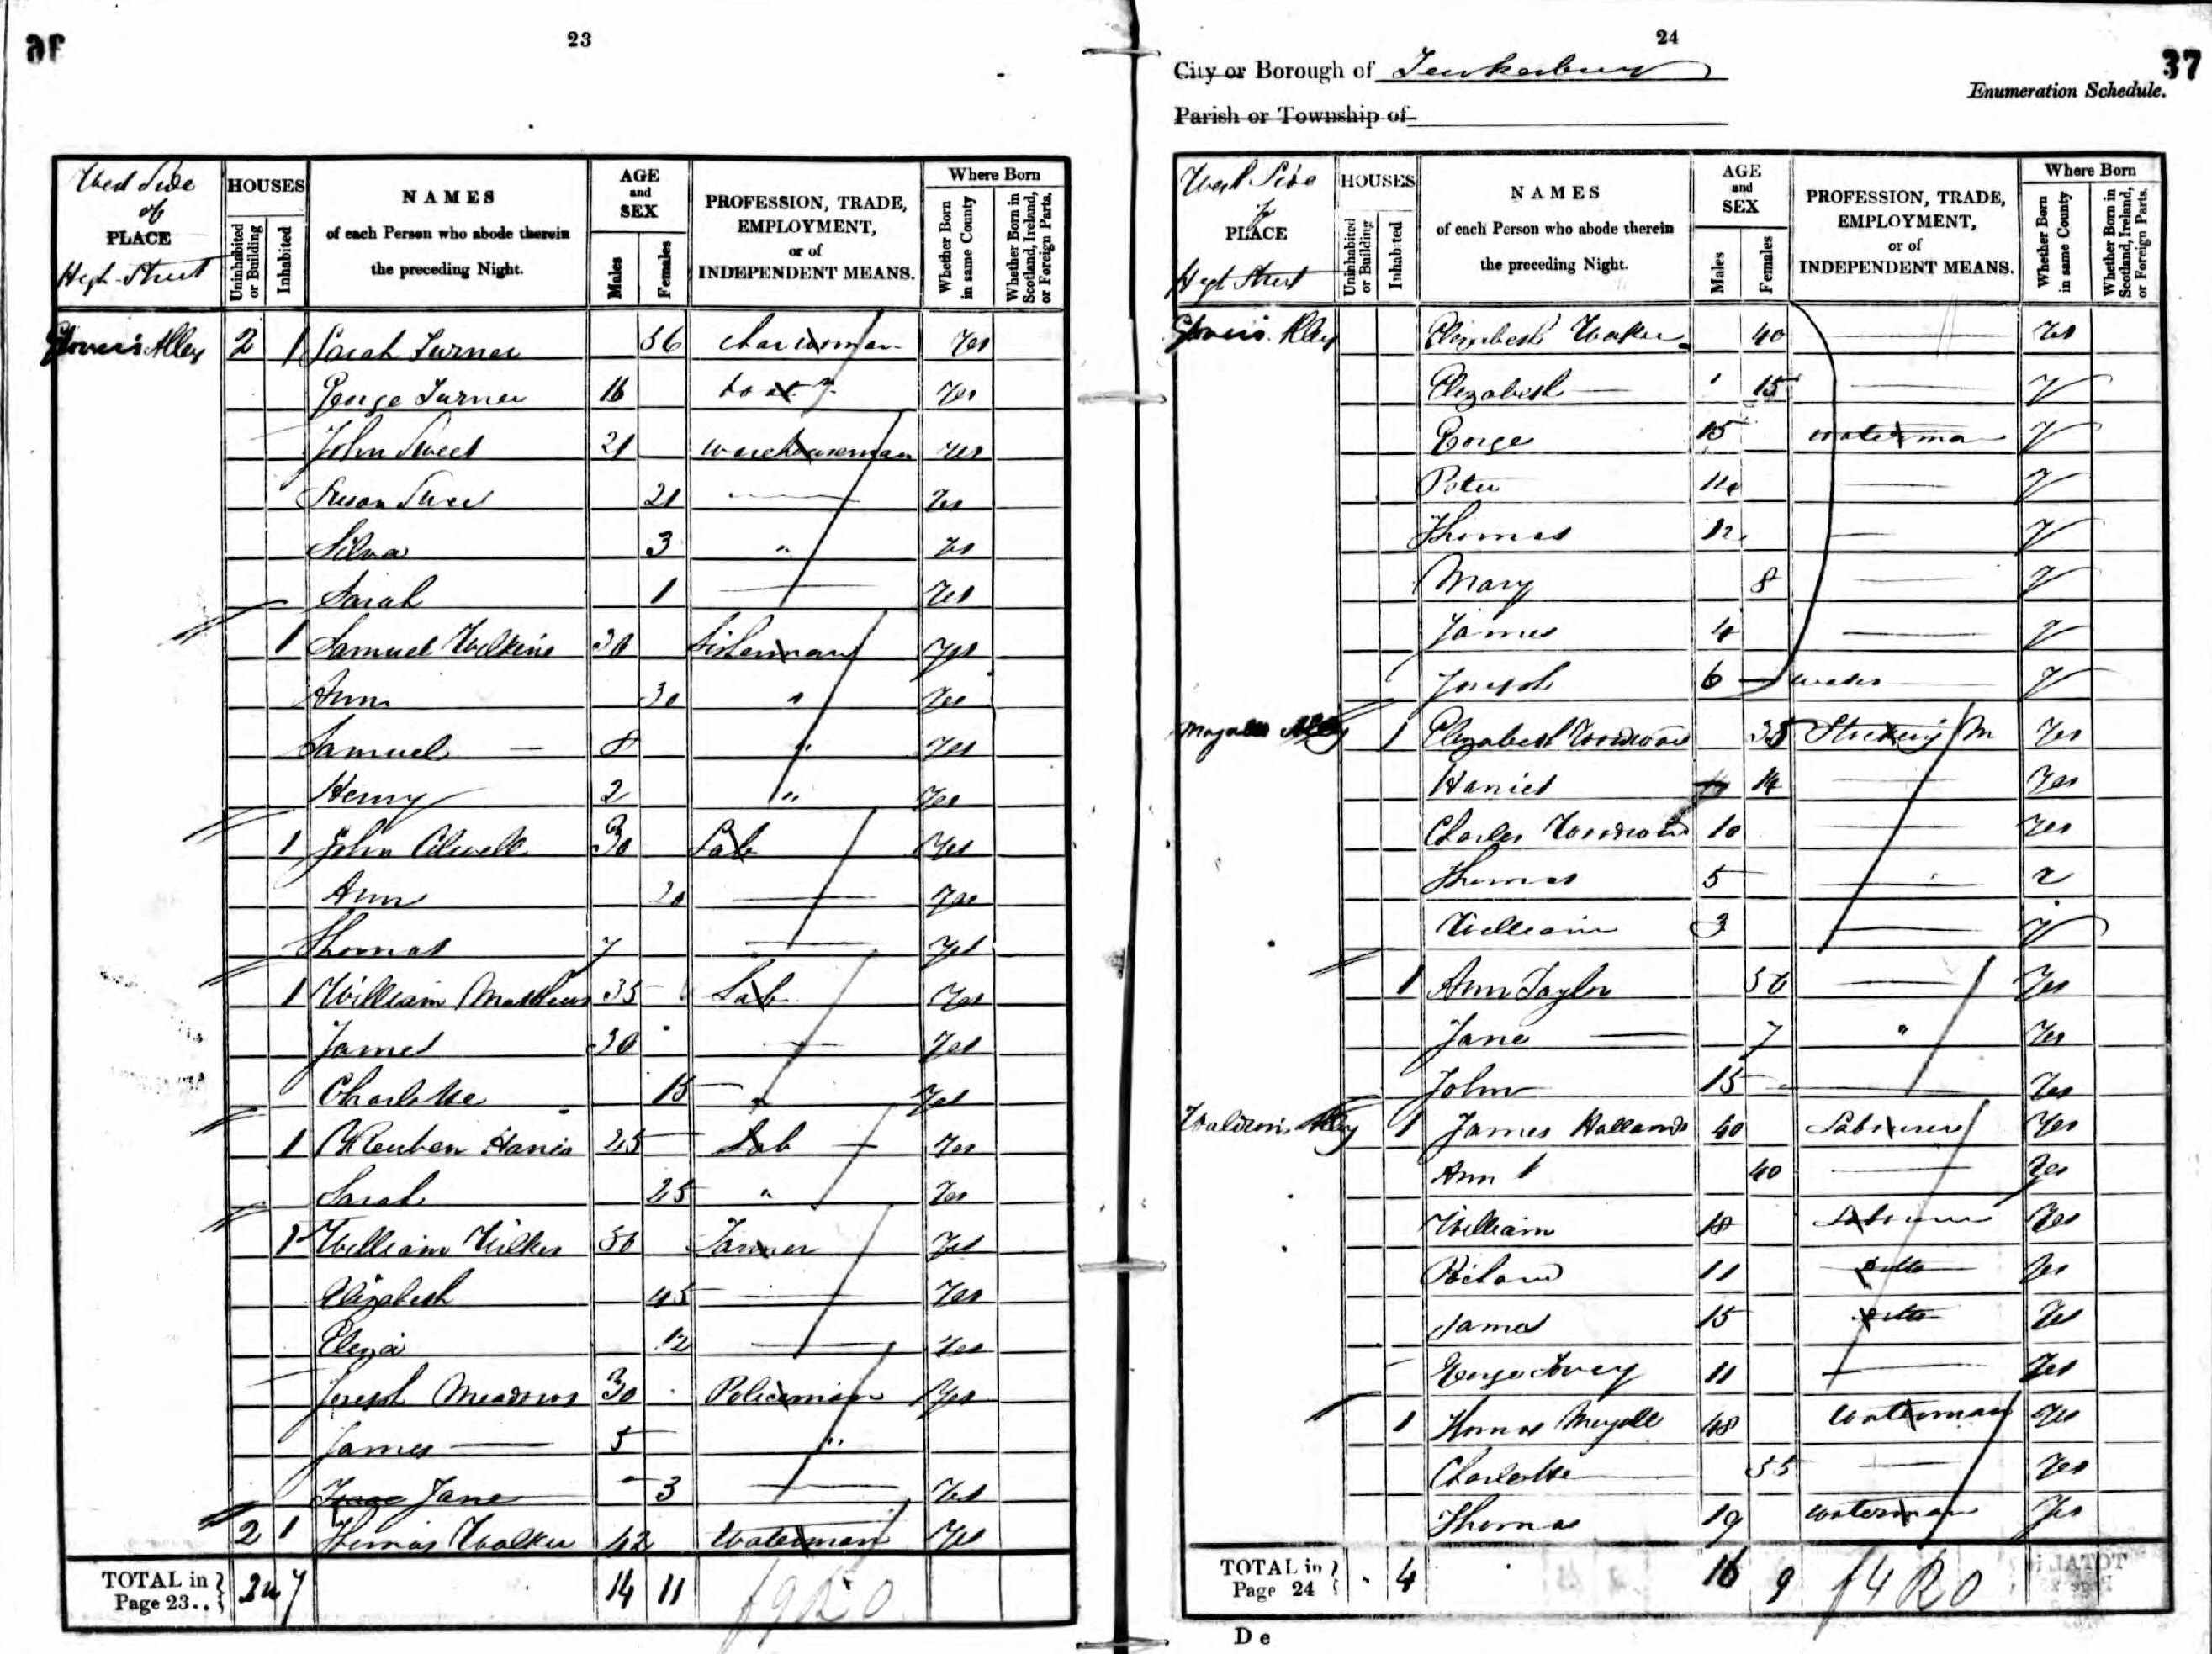 23
West Side
of
PLACE
High Street
HOUSES
Uninhabited or Building
Inhabited
NAMES
of each Person who abode therein
the preceding Night.
AGE
and
SEX
Males
Females
PROFESSION, TRADE,
EMPLOYMENT,
or of
INDEPENDENT MEANS.
Where Born
Whether Born in same County
Whether Born in Scotland, Ireland, or Foreign Parts.
Glovers Alley 2 1 Sarah Turner 56 charwoman Yes
George Turner 16 Yes
John Sweet 21 warehouseman Yes
Susan Sweet 21 Yes
Silva 3 " Yes
Sarah 1 Yes
1 Samuel Wilkins 30 Fisherman Yes
Ann 30 " Yes
Samuel 8 " Yes
Henry 2 " Yes
1 John 30 Lab Yes
Ann 20 Yes
Thomas 7 Yes
1 William Matthews 35 Lab Yes
James 30 Yes
Charlotte 15 " Yes
1 Reuben Hanis 25 Lab Yes
Sarah 25 " Yes
1 William Wilkes 50 Tanner Yes
Elizabeth 45 Yes
Eliza 12 Yes
Joseph Meadows 30 Policeman Yes
James 5 "
Jane 3 Yes
2 1 Thomas Walker 42 Waterman Yes
TOTAL in Page 23.. 7 14 11
24
37
City or Borough of Tewkesbury
Enumeration Schedule.
Parish or Township of
West Side
of
PLACE
High Street
HOUSES
Uninhabited or Building
Inhabited
NAMES
of each Person who abode therein
the preceding Night.
AGE
and
SEX
Males
Females
PROFESSION, TRADE,
EMPLOYMENT,
or of
INDEPENDENT MEANS.
Where Born
Whether Born in same County
Whether Born in Scotland, Ireland, or Foreign Parts.
Glovers Alley Elizabeth Walker 40 Yes
Elizabeth 15 Y
George 15 waterman Y
Peter 14 Y
Thomas 12 Y
Mary 8 Y
James 4 Y
Joseph 6 Y
Alley 1 Elizabeth Woodward 35 Stocking M Yes
Hariet 14 Yes
Charles Woodward 10 Yes
Thomas 5
William 3 Y
1 Ann Taylor 50 Yes
Jane 7 " Yes
John 15 Yes
Waldrons Alley 1 James Hallands 40 Labourer Yes
Ann 40 Yes
William 18 Labourer Yes
Richard 11 ditto Yes
James 15 ditto Yes
George 11 Yes
1 Thomas Mayall 48 Waterman Yes
Charlotte 55 Yes
Thomas 19 waterman Yes
TOTAL in Page 24 4 16 9
D e